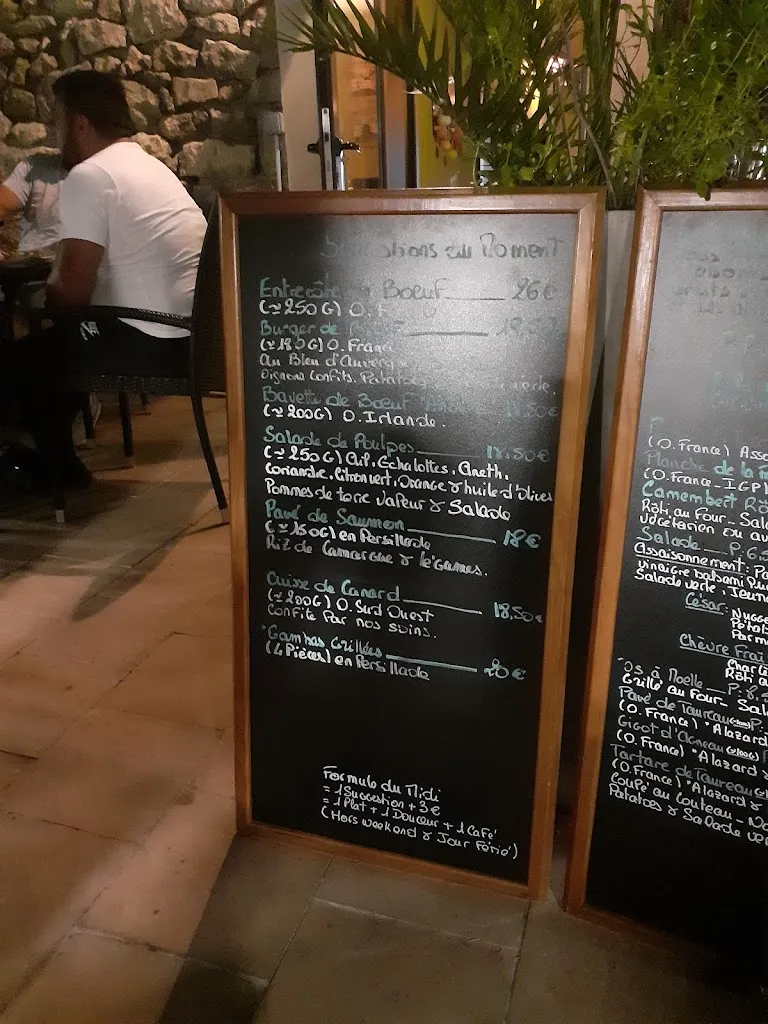 au Moment
Entrecôte Boeuf 26€
(≃250G) O.F
Burger de
(≃180G) O. Franc
Au Bleu d'Auvergne
Oignons Confits. Patatoes
Bavette de Boeuf
(≃200G) O. Irlande.
Salade de Poulpes 18.50€
(≃250G) Ail. Echalottes. Aneth.
Coriandre. Citron vert. Orange & huile d'olives
Pommes de terre Vapeur & Salade
Pavé de Saumon 18€
(≃160G) en Persillade
Riz de Camargue & légumes.
Cuisse de Canard 18.50€
(≃200G) O. Sud Ouest
Confite Par nos soins.
Gambas Grillées 20€
(4 Pièces) en Persillade
Formule du Midi
= 1 Suggestion + 3€
= 1 Plat + 1 Douceur + 1 Café
(Hors weekend & Jour Férié)
(O. France) Asso
Planche de la
(O. France - IGP
Camembert Rô
Rôti au Four - Sala
végétarien ou av
Salade P: 6.5
Assaisonnement: Pa
vinaigre balsami
Salade verte. Jeun
César: Nugge
Parm
Chèvre Frai
Rôti a
Os à Moelle P: 8.
Grillé au Four - Sal
Pavé de Taureau
(O. France) "Alazard
Gigot d'Agneau
(O. France) "Alazard &
Tartare de Taureau
(O. France) "Alazard &
Coupé au Couteau - No
Patatoes & Salade ver